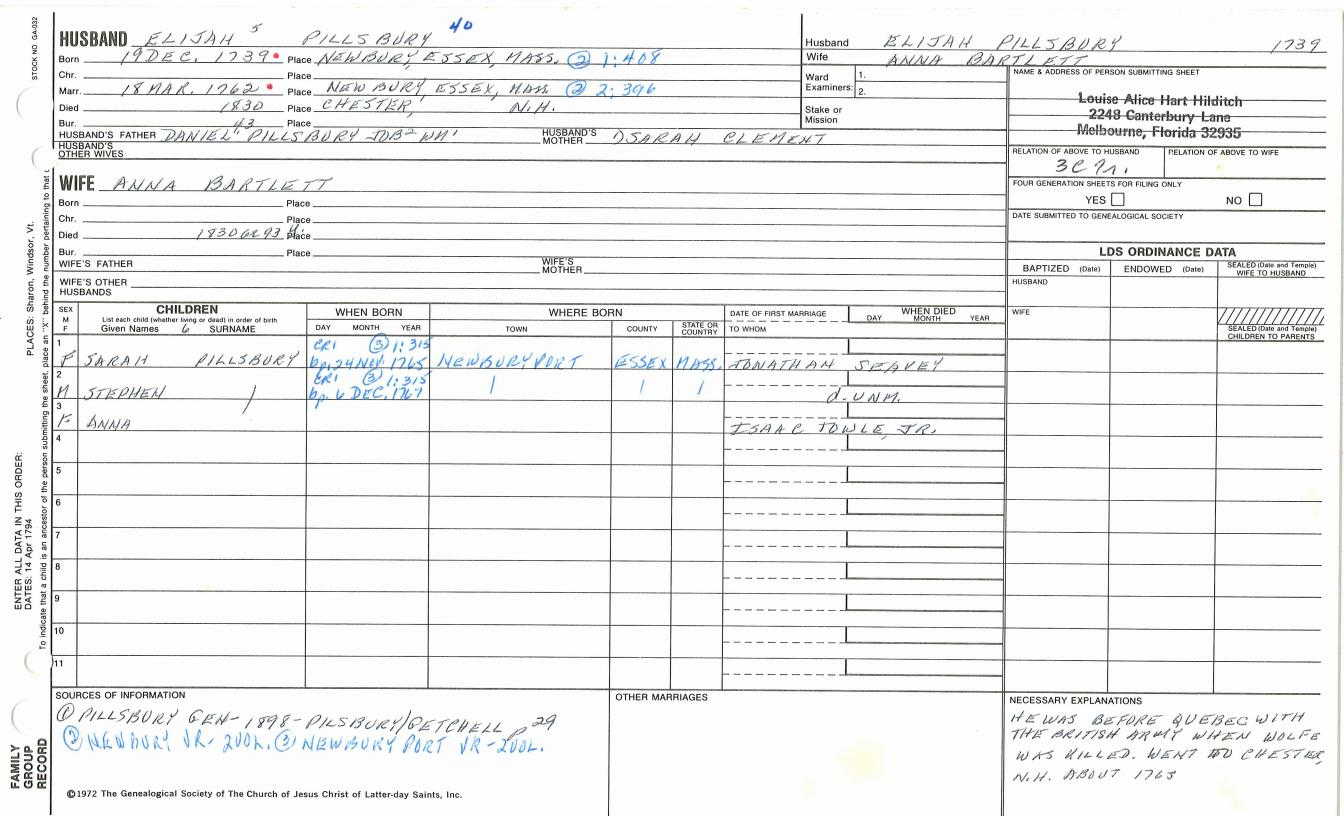 STOCK NO. GA-032
HUSBAND ELIJAH 5 PILLSBURY 40
Born 19 DEC. 1739 Place NEWBURY, ESSEX, MASS. ② 1:408
Chr. Place
Marr. 18 MAR. 1762 Place NEWBURY, ESSEX, MASS ② 2:396
Died 1830 Place CHESTER, N.H.
Bur. 43 Place
HUSBAND'S FATHER DANIEL⁴ PILLSBURY JOB² WM¹
HUSBAND'S MOTHER SARAH CLEMENT
HUSBAND'S OTHER WIVES
WIFE ANNA BARTLETT
Born Place
Chr. Place
Died 1830 Place
Bur. Place
WIFE'S FATHER
WIFE'S MOTHER
WIFE'S OTHER HUSBANDS
Husband ELIJAH PILLSBURY 1739
Wife ANNA BARTLETT
Ward Examiners: 1.
2.
Stake or Mission
NAME & ADDRESS OF PERSON SUBMITTING SHEET
Louise Alice Hart Hilditch
2248 Canterbury Lane
Melbourne, Florida 32935
RELATION OF ABOVE TO HUSBAND
RELATION OF ABOVE TO WIFE
FOUR GENERATION SHEETS FOR FILING ONLY
YES NO
DATE SUBMITTED TO GENEALOGICAL SOCIETY
LDS ORDINANCE DATA
BAPTIZED (Date) ENDOWED (Date) SEALED (Date and Temple) WIFE TO HUSBAND
HUSBAND
WIFE
SEALED (Date and Temple) CHILDREN TO PARENTS
SEX M F
CHILDREN
List each child (whether living or dead) in order of birth
Given Names 6 SURNAME
WHEN BORN
DAY MONTH YEAR
WHERE BORN
TOWN COUNTY STATE OR COUNTRY
DATE OF FIRST MARRIAGE
TO WHOM
WHEN DIED
DAY MONTH YEAR
1 CR1 ③ 1:315
F SARAH PILLSBURY bp. 24 NOV. 1765 NEWBURYPORT ESSEX MASS. JONATHAN SEAVEY
2 CR1 ③ 1:315
M STEPHEN / bp. 6 DEC. 1767 | | | d. UNM.
3
F ANNA ISAAC TOWLE, JR.
4
5
6
7
8
9
10
11
SOURCES OF INFORMATION
① PILLSBURY GEN- 1898- PILSBURY/GETCHELL p 29
② NEWBURY VR- 2VOL. ③ NEWBURY PORT VR-2VOL.
OTHER MARRIAGES
NECESSARY EXPLANATIONS
HE WAS BEFORE QUEBEC WITH
THE BRITISH ARMY WHEN WOLFE
WAS KILLED. WENT TO CHESTER,
N.H. ABOUT 1763
©1972 The Genealogical Society of The Church of Jesus Christ of Latter-day Saints, Inc.
FAMILY GROUP RECORD
ENTER ALL DATA IN THIS ORDER:
DATES: 14 Apr 1794
PLACES: Sharon, Windsor, Vt.
To indicate that a child is an ancestor of the person submitting the sheet, place an "X" behind the number pertaining to that